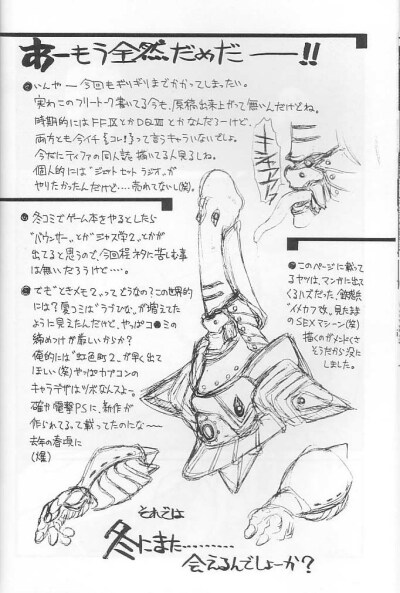 あーもう全然だめだ───!!
●いんや─今回もギリギリまでかかってしまったい。
実わこのフリートーク書いてる今も、原稿出来上がって無いんだけどね。
時期的にはFFⅨとかDQⅦとかなんだろーけど、
両方とも今イチ「コレ!」って言うキャラいないでしょ。
今だにティファの同人誌描いてる人見るしね。
個人的には"ジェットセットラジオ"が
やりたかったんだけど‥‥売れてないし(笑)
●冬コミでゲーム本をやるとしたら
"バウンサー"とか"ジャス学2"とかが
出てると思うので、今回程ネタに苦しむ事
は無いだろうけど‥‥。
●でも"ときメモ2"ってどうなの?この世界的
には?夏コミは"ラブひな"が増えてた
ように見えたんだけど、やっぱコ●ミの
締めつけが厳しいからか?
俺的には"虹色町2"が早く出て
ほしい(笑)やっぱカプコンの
キャラデザはツボなんスよー。
確か電撃PSに、新作が
作られてるって載ってたのにな〜
去年の春頃に
(爆)
●このページに載って
るヤツは、マンガに出て
くるハズだった、
"メカフ
SEXマシーン(笑)
描くのがメンドくさ
そうだから没に
しました。
それでは
冬にまた‥‥‥‥
会えるんでしょーか?